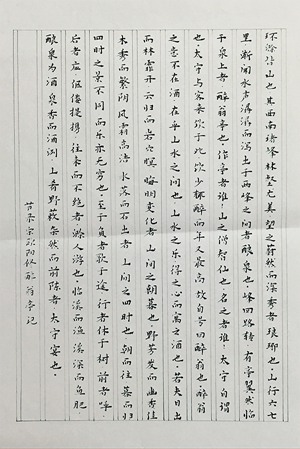 环滁皆山也其西南诸峰林壑尤美望之蔚然而深秀者琅琊也山行六七
里渐闻水声潺潺而泻出于两峰之间者酿泉也峰回路转有亭翼然临
于泉上者醉翁亭也作亭者谁山之僧智仙也名之者谁太守自谓
也太守与客来饮于此饮少辄醉而年又最高故自号曰醉翁也醉翁
之意不在酒在乎山水之间也山水之乐得之心而寓之酒也若夫日出
而林霏开云归而岩穴暝晦明变化者山间之朝暮也野芳发而幽香佳
木秀而繁阴风霜高洁水落而石出者山间之四时也朝而往暮而归
四时之景不同而乐亦无穷也至于负者歌于途行者休于树前者呼
后者应伛偻提携往来而不绝者滁人游也临溪而渔溪深而鱼肥
酿泉为酒泉香而酒洌山肴野蔌杂然而前陈者太守宴也
节录宋欧阳修醉翁亭记